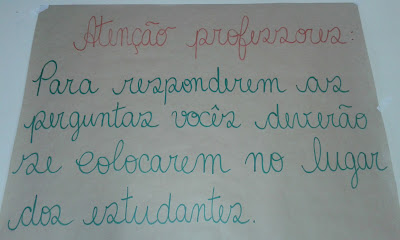 Atenção professores:
Para responderem as
perguntas vocês deverão
se colocarem no lugar
dos estudantes.